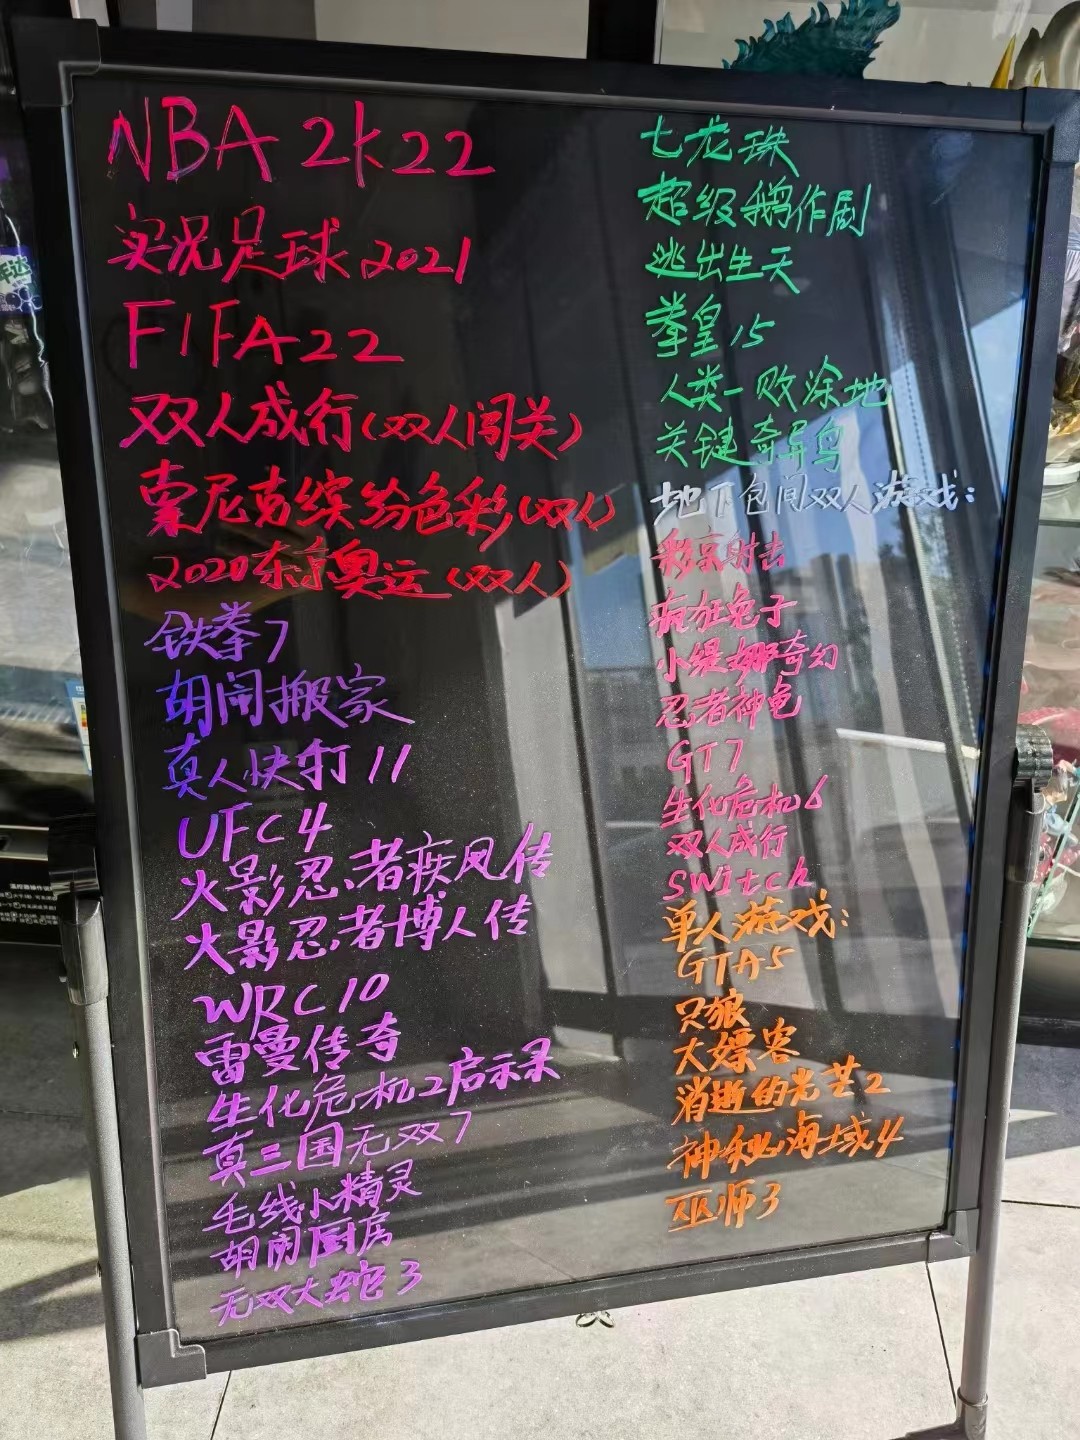 NBA 2k22
实况足球2021
FIFA22
双人成行(双人闯关)
索尼克缤纷色彩(双人)
2020东京奥运(双人)
铁拳7
胡闹搬家
真人快打11
UFC4
火影忍者疾风传
火影忍者博人传
WRC10
雷曼传奇
生化危机2启示录
真三国无双7
毛线小精灵
胡闹厨房
无双大蛇3
七龙珠
超级鹅作剧
逃出生天
拳皇15
人类一败涂地
关键奇异鸟
地下包间双人游戏:
彩京射击
疯狂兔子
小缇娜奇幻
忍者神龟
GT7
生化危机6
双人成行
SWitch
单人游戏:
GTA5
只狼
大嫖客
消逝的光芒2
神秘海域4
巫师3